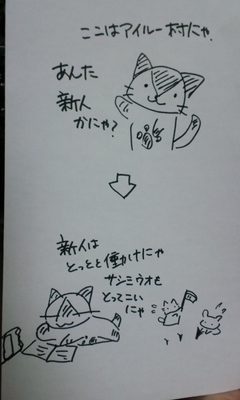 ここはアイルー村にゃ。
あんた
新人
かにゃ?
新人は
とっとと働けにゃ
サシミウオを
とってこい
にゃ